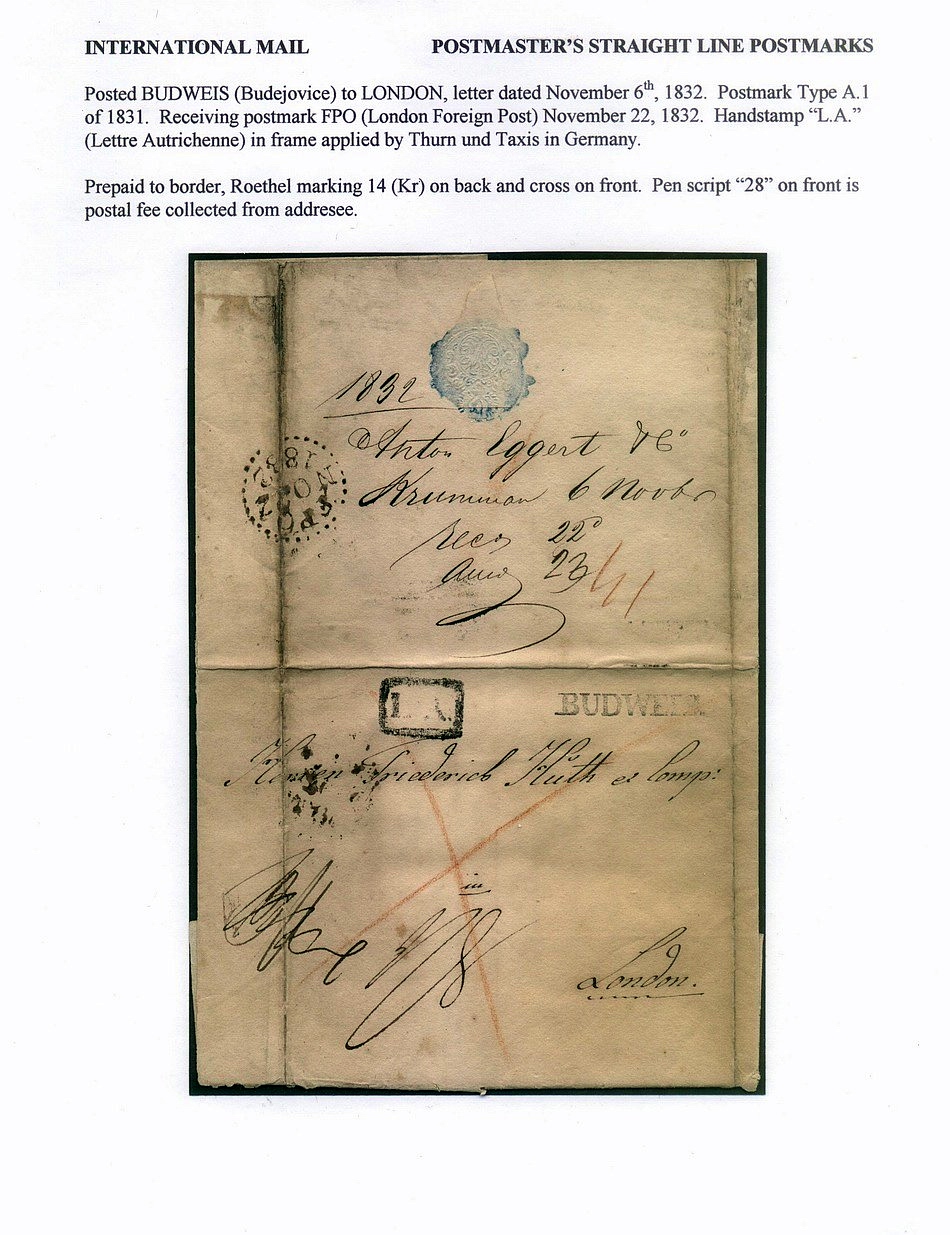 INTERNATIONAL MAIL POSTMASTER'S STRAIGHT LINE POSTMARKS
Posted BUDWEIS (Budejovice) to LONDON, letter dated November 6th, 1832. Postmark Type A.1
of 1831. Receiving postmark FPO (London Foreign Post) November 22, 1832. Handstamp “L.A.”
(Lettre Autrichenne) in frame applied by Thurn und Taxis in Germany.
Prepaid to border, Roethel marking 14 (Kr) on back and cross on front. Pen script “28” on front is
postal fee collected from addresee.
1832
Anton Eggert & Co
Krummau 6 Novbr
FPO
NO
1832
Recd 22d
23
L.A.
BUDWEIS.
Herren Friederich Huth et Comp:
in
London.